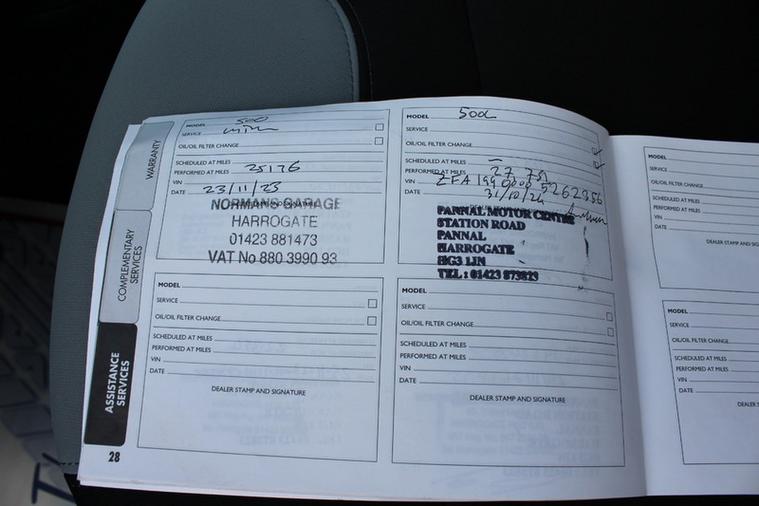 WARRANTY
COMPLEMENTARY
SERVICES
ASSISTANCE
SERVICES
28
MODEL 500
SERVICE
OIL/OIL FILTER CHANGE
SCHEDULED AT MILES
PERFORMED AT MILES 25176
VIN
DATE 23/11/23
NORMANS GARAGE
HARROGATE
01423 881473
VAT No 880 3990 93
MODEL 500L
SERVICE
OIL/OIL FILTER CHANGE
SCHEDULED AT MILES –
PERFORMED AT MILES 27 751
VIN ZFA
DATE 31/10/24
PANNAL MOTOR CENTRE
STATION ROAD
PANNAL
HARROGATE
HG3 1JN
TEL : 01423 873823
MODEL
SERVICE
OIL/OIL FILTER CHANGE
SCHEDULED AT MILES
PERFORMED AT MILES
VIN
DATE
DEALER STAMP AND SIGNATURE
MODEL
SERVICE
OIL/OIL FILTER CHANGE
SCHEDULED AT MILES
PERFORMED AT MILES
VIN
DATE
DEALER STAMP AND SIGNATURE
MODEL
SERVICE
OIL/OIL FILTER CHANGE
SCHEDULED AT MILES
PERFORMED AT MILES
VIN
DATE
DEALER STAMP
MODEL
SERVICE
OIL/OIL FILTER CHANGE
SCHEDULED AT MILES
PERFORMED AT MILES
VIN
DATE
DEALER